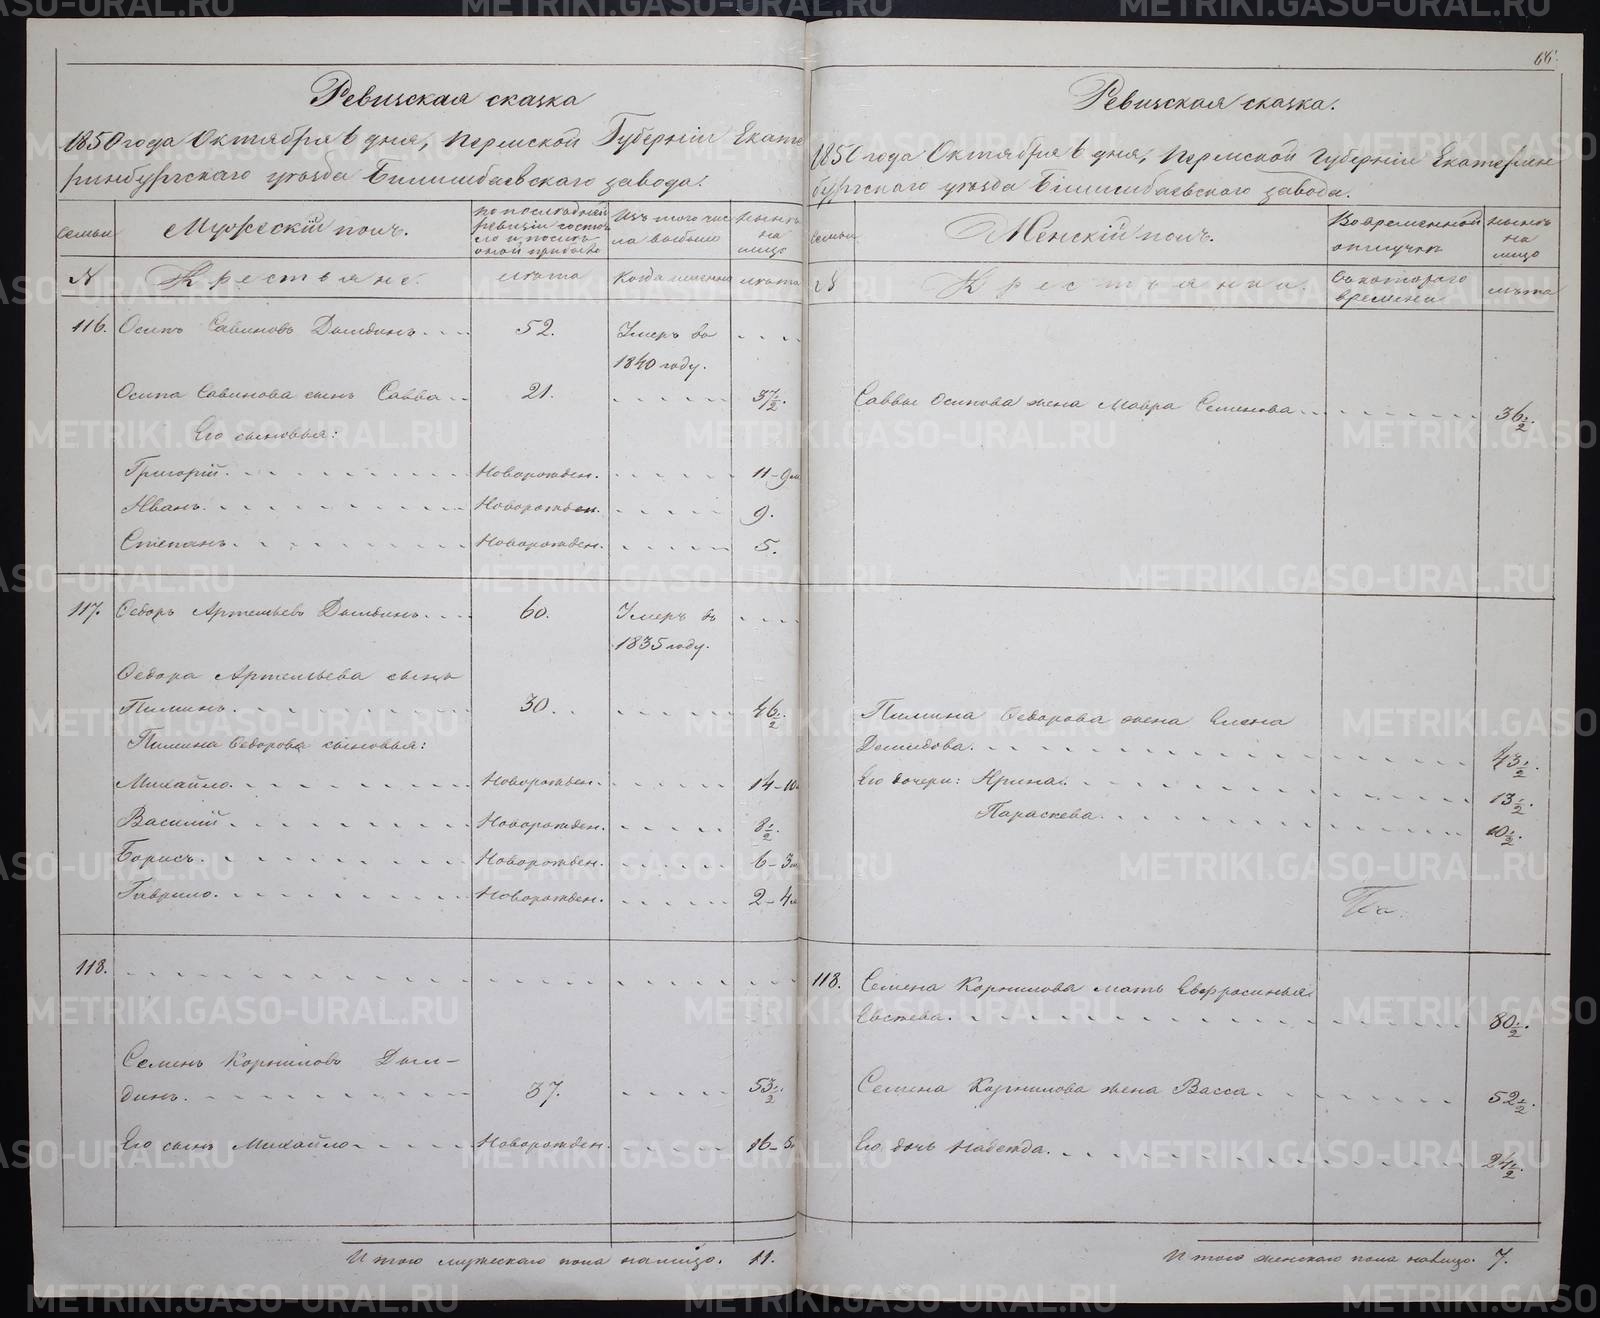 66.
Ревизская сказка
1850 года Октября 6 дня, Пермской Губерніи Екате
ринбургскаго уѣзда Билимбаевскаго завода.
семьи
Мужескій полъ.
по последней ревизіи состояло и послѣ оной прибыло
Изъ того числа выбыло
нынѣ на лицо
№
Крестьяне.
лѣта
Когда именно
лѣта
116. Осипъ Савиновъ Дылдинъ. 52. Умеръ въ
1840 году.
Осипа Савинова сынъ Савва 21. 37½.
Его сыновья:
Григорій. Новорожден. 11-9м
Иванъ. Новорожден. 9.
Степанъ. Новорожден. 5.
117. Ѳедоръ Артемьевъ Дылдинъ. 60. Умеръ въ
1835 году.
Ѳедора Артемьева сынъ
Пиминъ. 30. 46½.
Пимина Ѳедорова сыновья:
Михайло. Новорожден. 14-10
Василій. Новорожден. 8½.
Борисъ. Новорожден. 6-3м
Гаврило. Новорожден. 2-4м
118.
Семенъ Корниловъ Дыл-
динъ. 37. 53½.
Его сынъ Михайло Новорожден. 16-5
Итого мужескаго пола налицо. 11.
Ревизская сказка.
1850 года Октября 6 дня, Пермской Губерніи Екатерин
бургскаго уѣзда Билимбаевскаго завода.
семьи
Женскій полъ.
Во временной отлучкѣ
нынѣ на лицо
№
Крестьянки.
Съ котораго времени
лѣта
Саввы Осипова жена Мавра Семенова 36½.
Пимина Ѳедорова жена Елена
Демидова. 43½.
Его дочери: Ирина. 13½.
Параскева. 10½.
118. Семена Корнилова мать Евфросинья
80½.
Семена Корнилова жена Васса. 52½.
Его дочь Надежда. 24½.
Итого женскаго пола налицо. 7.
METRIKI.GASO-URAL.RU